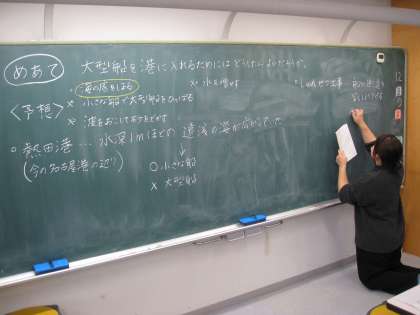 めあて 大型船を港に入れるためにはどうしたらよいだろうか。
<予想>
・海の底をほる
× 水を増やす
× 小さな船で大型船をひっぱる
× 波をおこして
・しゅんせつ工事…
○ 熱田港…水深1mほどの遠浅の海が広がっていた
(今の名古屋港の辺り)
↓
○ 小さな船
× 大型船
12
月